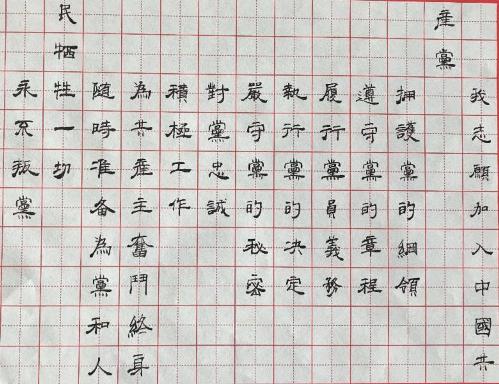 我志願加入中國共
產黨
擁護黨的綱領
遵守黨的章程
履行黨員義務
執行黨的决定
嚴守黨的秘密
對黨忠誠
積極工作
為共產主奮鬥終身
随時准备為黨和人
民牺牲一切
永不叛黨